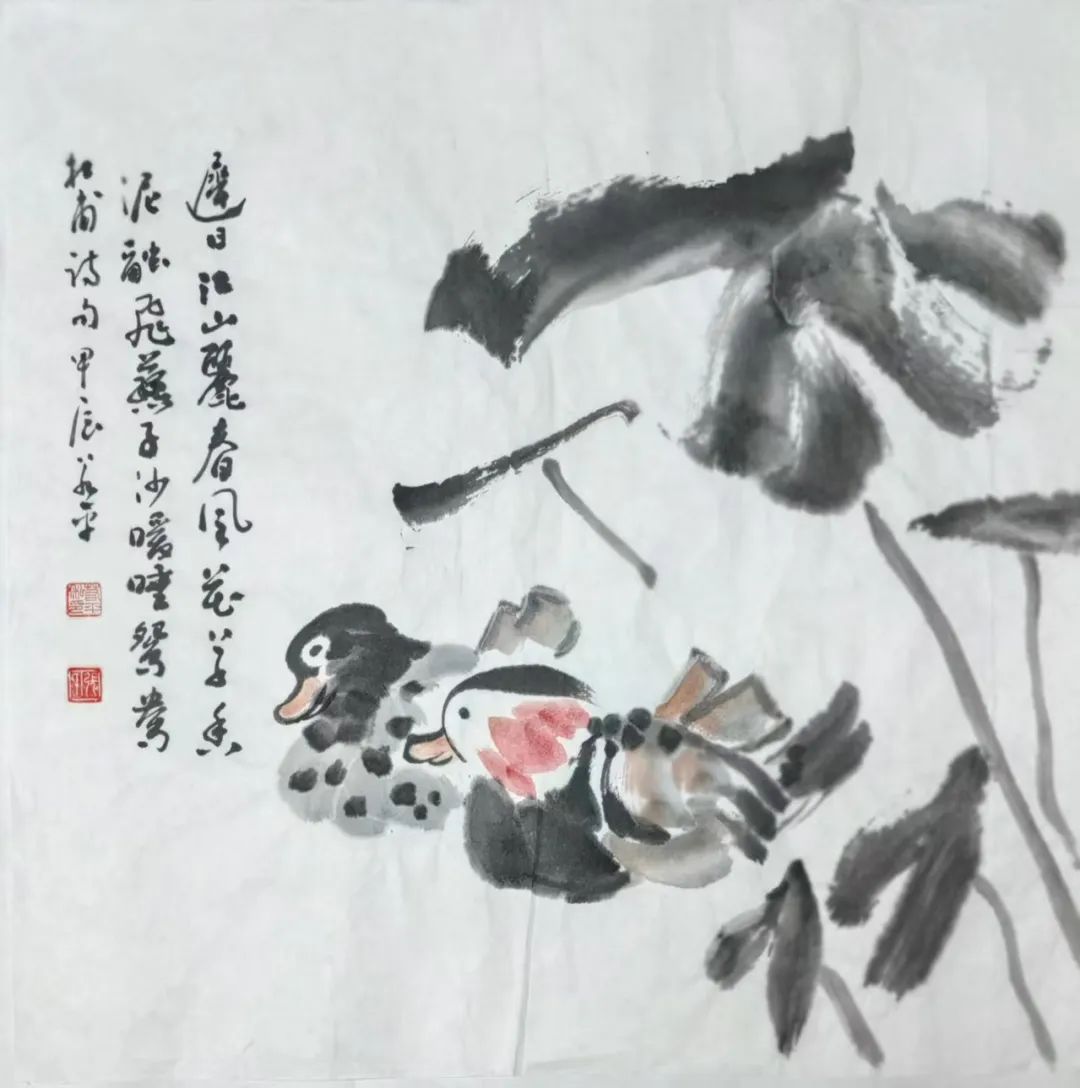 遲日江山麗春風花草香
泥融飛燕子沙暖睡鴛鴦
杜甫诗句甲辰